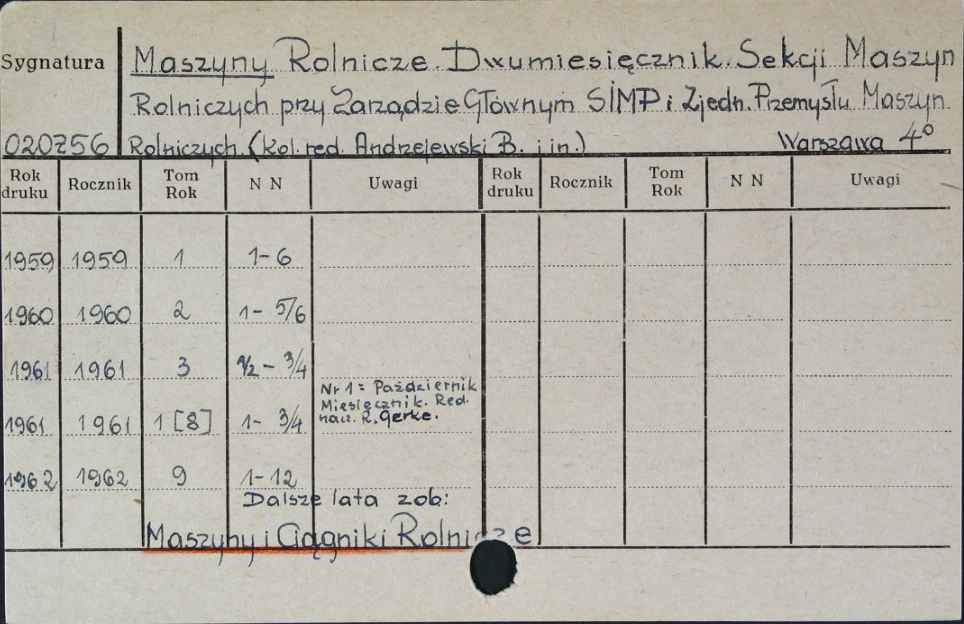 Sygnatura Maszyny Rolnicze. Dwumiesięcznik. Sekcji Maszyn
Rolniczych przy Zarządzie Głównym SIMP i Zjedn. Przemysłu Maszyn.
020256 Rolniczych. (Kol. red. Andrzejewski B. i in.) Warszawa 4°
Rok druku Rocznik Tom Rok N N Uwagi Rok druku Rocznik Tom Rok N N Uwagi
1959 1959 1 1-6
1960 1960 2 1- 5/6
1961 1961 3 1/2 - 3/4
Nr 1 = Październik
Miesięcznik. Red.
1961 1961 1 [8] 1- 3/4 nacz. R. Gerke.
1962 1962 9 1-12
Dalsze lata zob:
Maszyny i Ciągniki Rolnicze